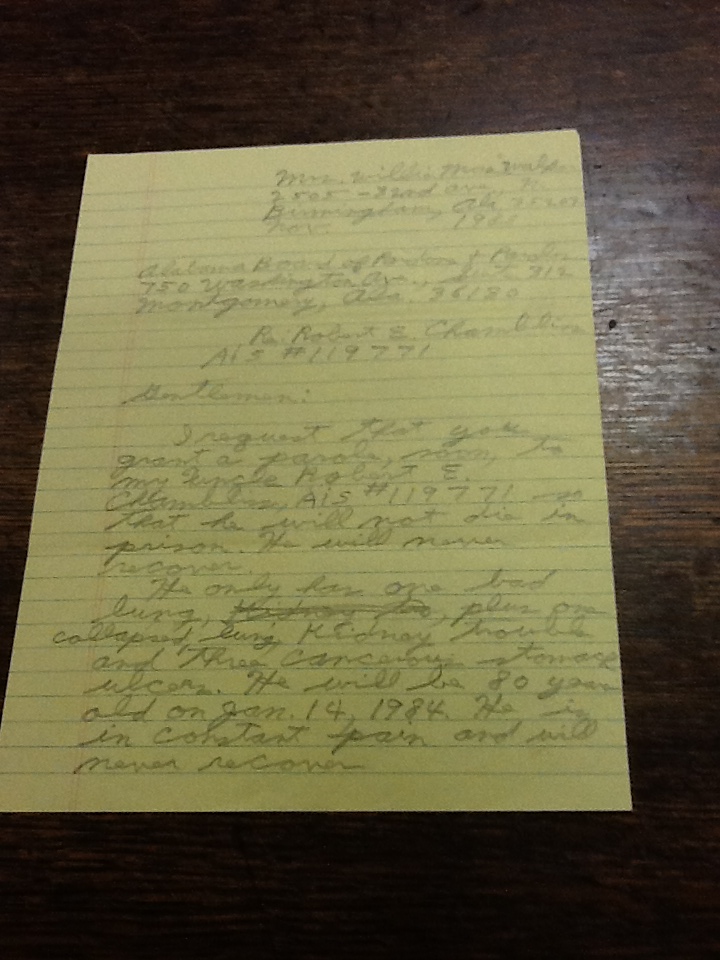 Mrs. Willie Mae Walker
2505 - 32nd Ave., N.
Birmingham, Ala. 35207
Nov. 19
Alabama Board of Pardons & Paroles
750 Washington Av., Suite 312
Montgomery, Ala. 36130
Re: Robert E. Chambliss
AIS #119771
Gentlemen:
I request that you
grant a parole, soon, to
my Uncle Robert E.
Chambliss, AIS #119771 so
that he will not die in
prison. He will never
recover.
He only has one bad
lung, Kidney too, plus one
collapsed lung, Kidney trouble
and three cancerous stomach
ulcers. He will be 80 years
old on Jan. 14, 1984. He is
in constant pain and will
never recover